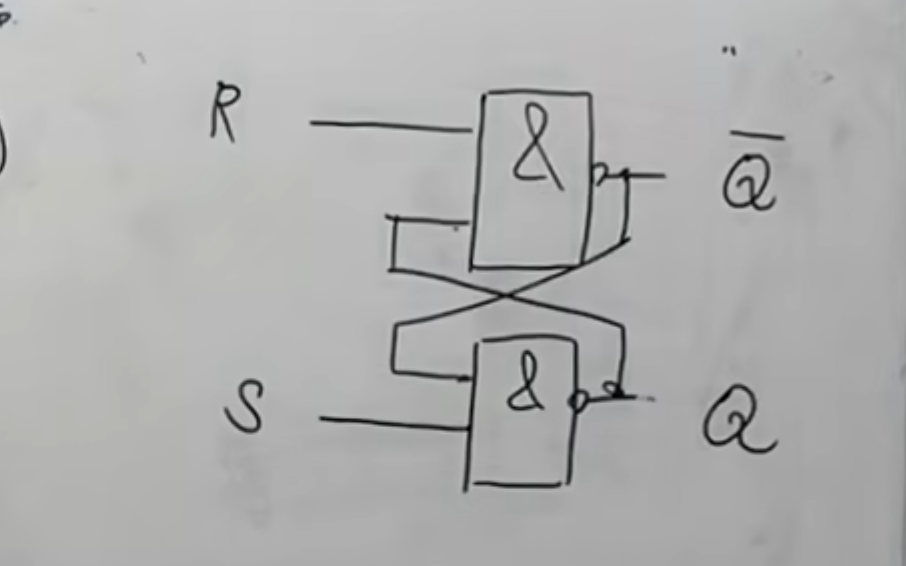 R
&
Q̅
S
&
Q